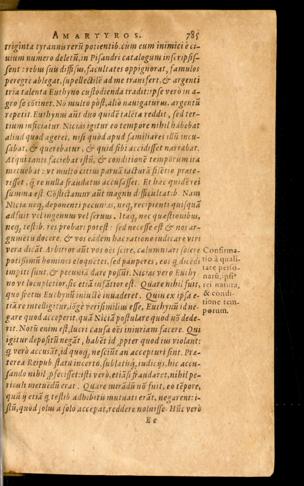 AMARTYROS. 785
triginta tyrannis rerũ potientib. cùm eum inimici è ci-
uium numero deletũ, in Pisandri catalogum inscripsis-
sent: rebus suis diffisus, facultates oppignorat, famulos
peregrè ablegat, supellectilẽ ad me transfert, & argenti
tria talenta Euthyno custodienda tradit: ipse verò in a-
gro se cõtinet. Nõ multo pòst, alió nauigaturus, argentũ
repetit. Euthynus aũt duo quidẽ talẽta reddit, sed ter-
tium inficiatur. Nicias igitur eo tempore nihil habebat
aliud quod ageret, nisi quòd apud familiares illũ incu-
sabat, & querebatur, & quid sibi accidisset narrabat.
Atqui tanti faciebat istũ, & conditionẽ temporum ita
metuebat: vt multo citiùs parua iactura
summa est. Cõflictamur aũt magna difficultate. Nam
Niciæ neq, deponenti pecunias, neq, recipienti quisquã
adfuit vel ingenuus vel seruus. Itaq, nec quæstionibus,
neq, testib. res probari potest: sed necesse est & nos ar-
gumẽtis docere, & vos eâdem hac ratione iudicare vtri
vera dicãt. Arbitror aũt vos oẽs scire, calumniari solere
potissimũ homines eloquẽtes, sed pauperes, eos q̃ dicẽdi
impiti sunt, & pecuniâ dare possũt. Nicias verò Euthy
no vt locupletior, sic etiã insãtior est. Quare nihil fuit,
quo spectãs Euthynũ iniustè inuaderet. Quin ex ipsa e-
tiã re intelligitur, lõgè verisimilius esse, Euthynũ id ne-
gare quod acceperit, quã Niciã postulare quod nõ dede-
rit. Notũ enim est, lucri causa oẽs iniuriam facere. Qui
igitur depositũ negãt, habẽt id, ppter quod ius violant:
q̃ verò accusãt, id quoq, nesciũt an accepturi sint. Præ-
terea Reipub. statu incerto, sublatisq, iudicijs, hic accu-
sando nihil, pfecisset: isti verò, etiãsi fraudaret, nihil pe-
riculi metuẽdũ erat. Quare mirãdũ nõ fuit, eo tẽpore,
quũ ij etiã q̃ testib. adhibitis mutuati erãt, negarent: i-
stũ, quòd solus à solo accepat, reddere noluisse. Hũc verò
Confirma-
tio à quali-
tate perso-
narũ, ipsi⁹
rei natura,
& condi-
tione tem-
porum.
Ee